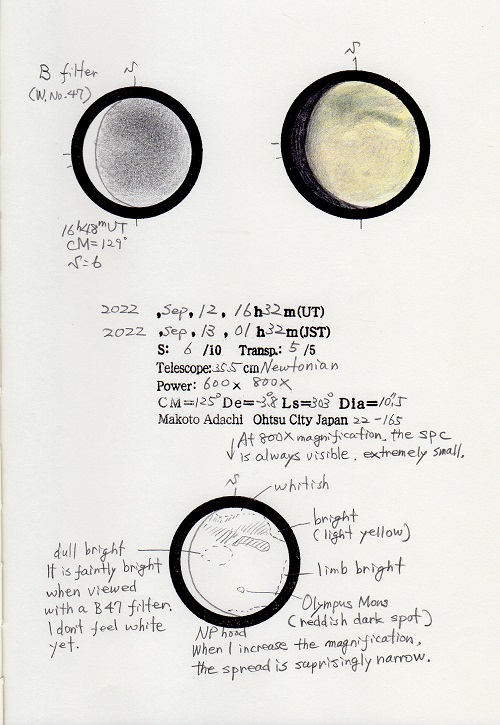 B filter
(W.No-47)
S
S
16h48mUT
CM=129°
S=6
2022 , Sep, 12, 16h32m(UT)
2022 , Sep, 13, 01h32m(JST)
S: 6 /10 Transp.: 5 /5
Telescope: 35.5 cm Newtonian
Power: 600× 800×
CM=125° De=-3.8° Ls=303° Dia=10".5
Makoto Adachi Ohtsu City Japan 22-165
↓ At 800× magnification, the SPC
is always visible. extremely small.
S
whitish
bright
(light yellow)
dull bright
It is faintly bright
when viewed
with a B47 filter.
I dont feel white
yet.
limb bright
Olympus Mons
(reddish dark spot)
NP hood
When I increase the magnification,
the spread is suprisingly narrow.